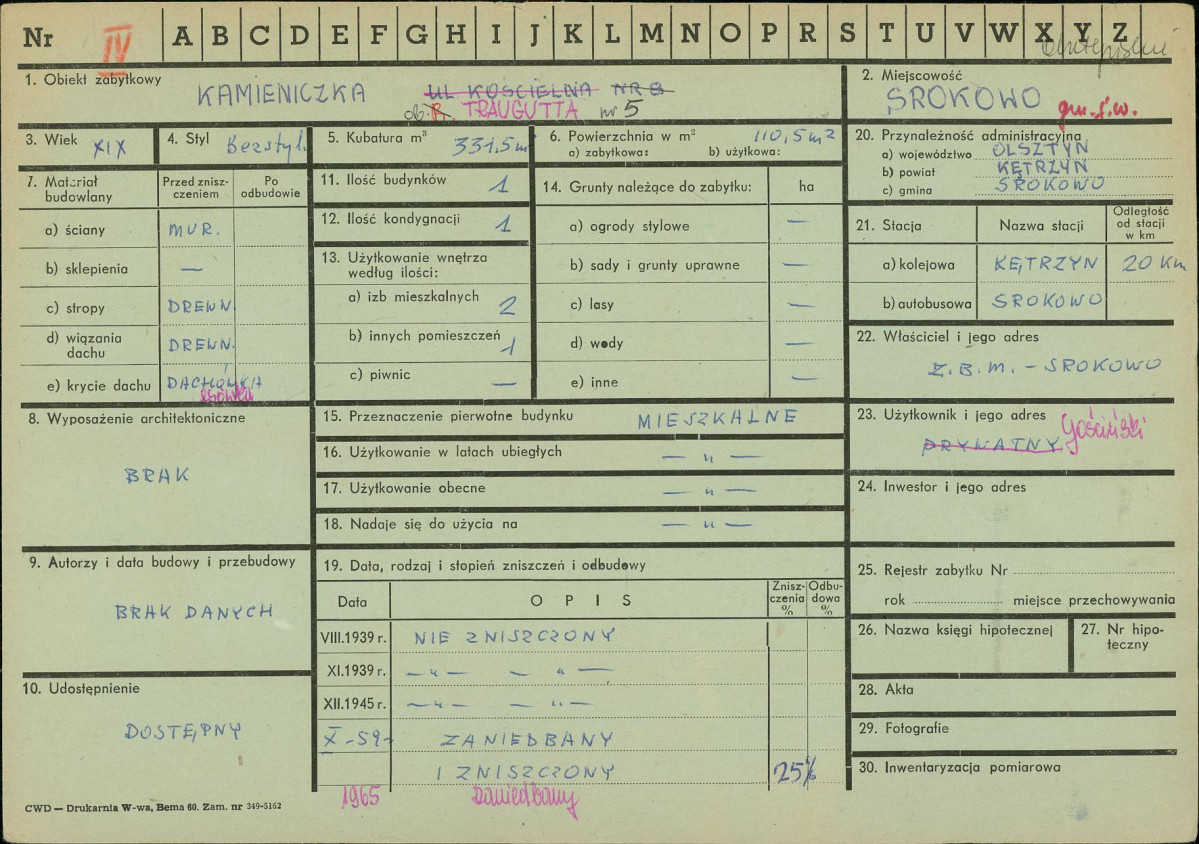 Nr IV A B C D E F G H I J K L M N O P R S T U V W X Y Z
1. Obiekt zabytkowy
KAMIENICZKA UL KOŚCIELNA NR 8
ob. R. TRAUGUTTA nr 5
2. Miejscowość
SROKOWO gm. ś.w.
3. Wiek XIX
4. Styl bezstyl.
5. Kubatura m³ 331,5 m
6. Powierzchnia w m² 110,5 m²
a) zabytkowa: b) użytkowa:
20. Przynależność administracyjna
a) województwo OLSZTYN
b) powiat KĘTRZYN
c) gmina SROKOWO
7. Materiał budowlany
Przed zniszczeniem
Po odbudowie
a) ściany MUR.
b) sklepienia —
c) stropy DREWN.
d) wiązania dachu DREWN.
e) krycie dachu DACHÓWKA
esówka
11. Ilość budynków 1
12. Ilość kondygnacji 1
13. Użytkowanie wnętrza według ilości:
a) izb mieszkalnych 2
b) innych pomieszczeń 1
c) piwnic —
14. Grunty należące do zabytku: ha
a) ogrody stylowe —
b) sady i grunty uprawne —
c) lasy —
d) wody —
e) inne —
21. Stacja Nazwa stacji Odległość od stacji w km
a) kolejowa KĘTRZYN 20 Km
b) autobusowa SROKOWO
22. Właściciel i jego adres
Z.B.M. - SROKOWO
8. Wyposażenie architektoniczne
BRAK
15. Przeznaczenie pierwotne budynku MIESZKALNE
16. Użytkowanie w latach ubiegłych — „ —
17. Użytkowanie obecne — „ —
18. Nadaje się do użycia na — „ —
23. Użytkownik i jego adres
PRYWATNY Gościński
24. Inwestor i jego adres
9. Autorzy i data budowy i przebudowy
BRAK DANYCH
19. Data, rodzaj i stopień zniszczeń i odbudowy
Data OPIS Zniszczenia % Odbudowa %
VIII.1939 r. NIE ZNISZCZONY
XI.1939 r. — „ — — „ —
XII.1945 r. — „ — — „ —
X-59- ZANIEDBANY
I ZNISZCZONY 25%
1965 zaniedbany
25. Rejestr zabytku Nr
rok miejsce przechowywania
26. Nazwa księgi hipotecznej
27. Nr hipoteczny
10. Udostępnienie
DOSTĘPNY
28. Akta
29. Fotografie
30. Inwentaryzacja pomiarowa
CWD — Drukarnia W-wa, Bema 60. Zam. nr 349-5162